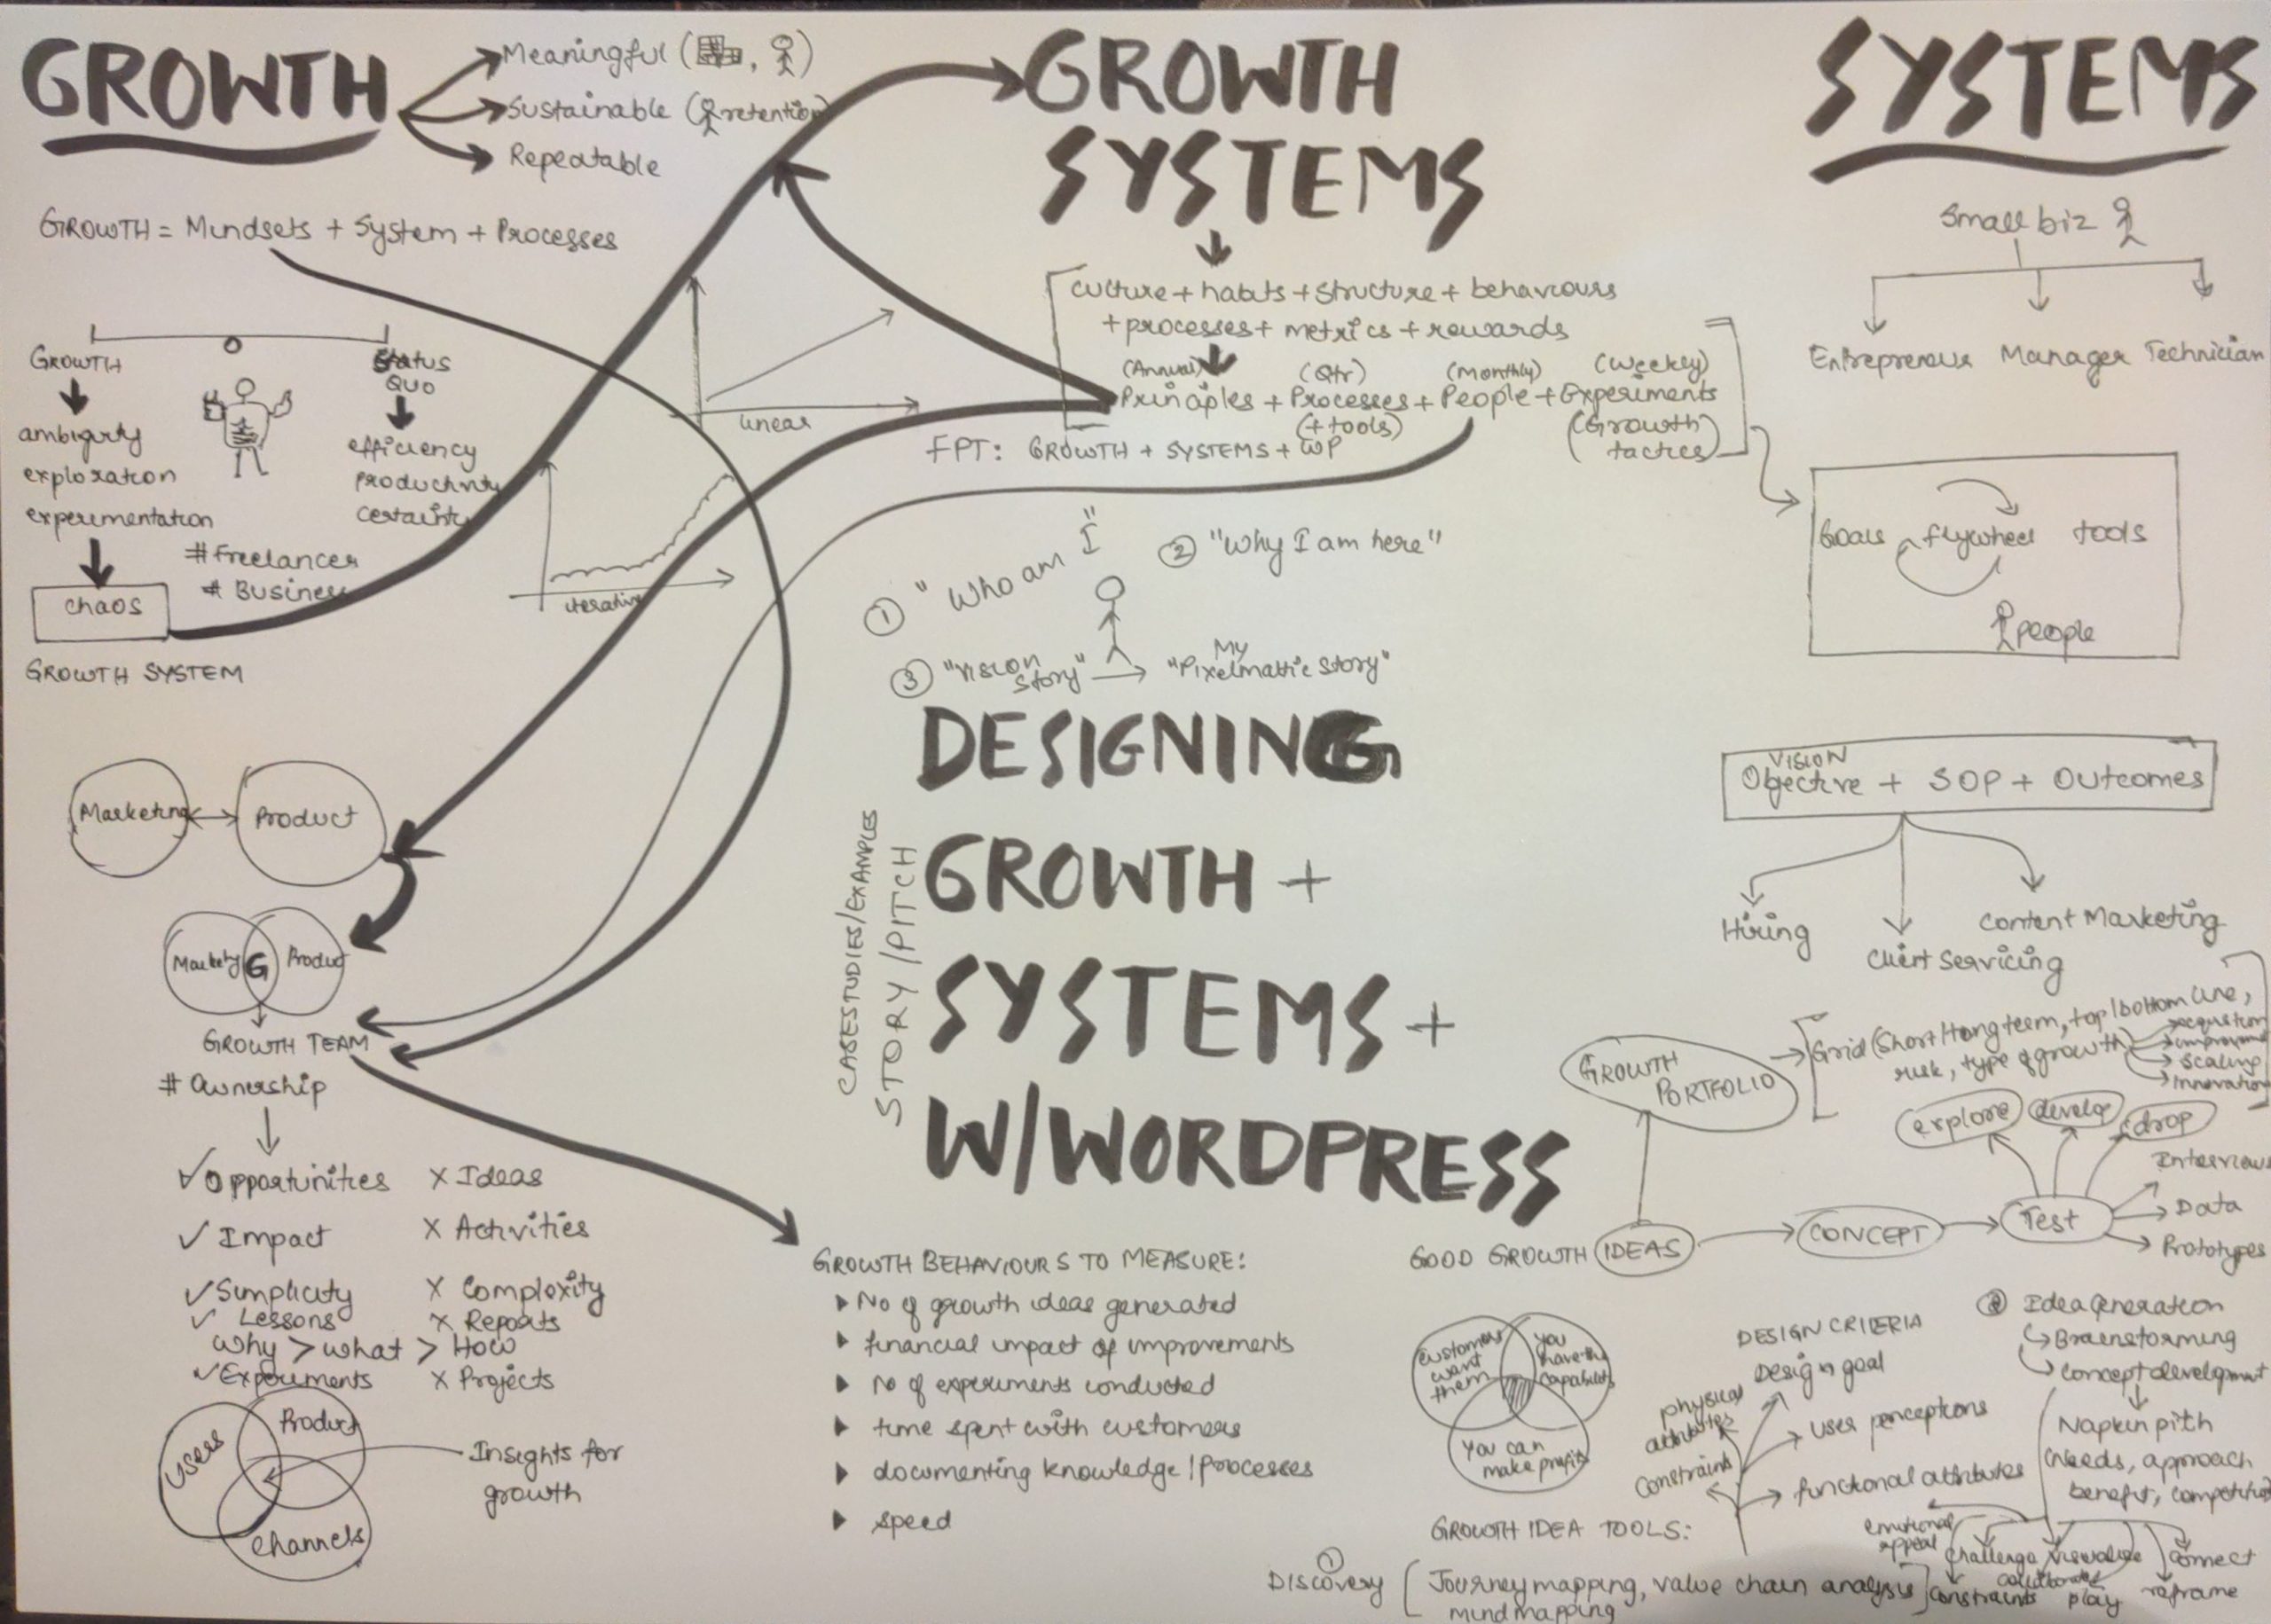 GROWTH
Meaningful
Sustainable (retention)
Repeatable
GROWTH = Mindsets + System + Processes
GROWTH
ambiguity
exploration
experimentation
chaos
GROWTH SYSTEM
Status
QUO
efficiency
productivity
certainty
#Freelancer
# Business
linear
iterative
Marketing
Product
G
Product
GROWTH TEAM
# Ownership
✓ Opportunities X Ideas
✓ Impact X Activities
✓ Simplicity X Complexity
✓ Lessons X Reports
Why > what > How
✓ Experiments X Projects
Users
Product
Channels
Insights for
growth
GROWTH
SYSTEMS
culture + habits + structure + behaviours
+ processes + metrics + rewards
(Annual) (Qtr) (monthly) (weekly)
Principles + Processes + People + Experiments
(+ tools) (Growth
tactics)
FPT: GROWTH + SYSTEMS + WP
① "Who am I"
② "Why I am here"
③ "Vision
Story"
My
"Pixelmattic Story"
CASESTUDIES/EXAMPLES
STORY/PITCH
DESIGNING
GROWTH +
SYSTEMS +
W/WORDPRESS
GROWTH BEHAVIOURS TO MEASURE:
No of growth ideas generated
financial impact of improvements
no of experiments conducted
time spent with customers
documenting knowledge/processes
speed
SYSTEMS
Small biz
Entrepreneur Manager Technician
Goals flywheel tools
people
VISION
Objective + SOP + Outcomes
Hiring
Client Servicing
Content Marketing
GROWTH
PORTFOLIO
Grid (Short/long term, top/bottom line,
risk, type of growth)
acquisition
Scaling
Innovation
explore
develop
drop
GOOD GROWTH IDEAS
CONCEPT
Test
Interviews
Data
Prototypes
Customers
want
them
you
have the
capability
you can
make profits
DESIGN CRITERIA
Design goal
user perceptions
functional attributes
physical
attributes
Constraints
emotional
appeal
② Idea Generation
Brainstorming
Concept development
Napkin pitch
(Needs, approach
benefit, competition
Challenge
Visualize
Connect
constraints
collaborate
play
reframe
GROWTH IDEA TOOLS:
①
DISCOVERY
Journey mapping, value chain analysis
mind mapping